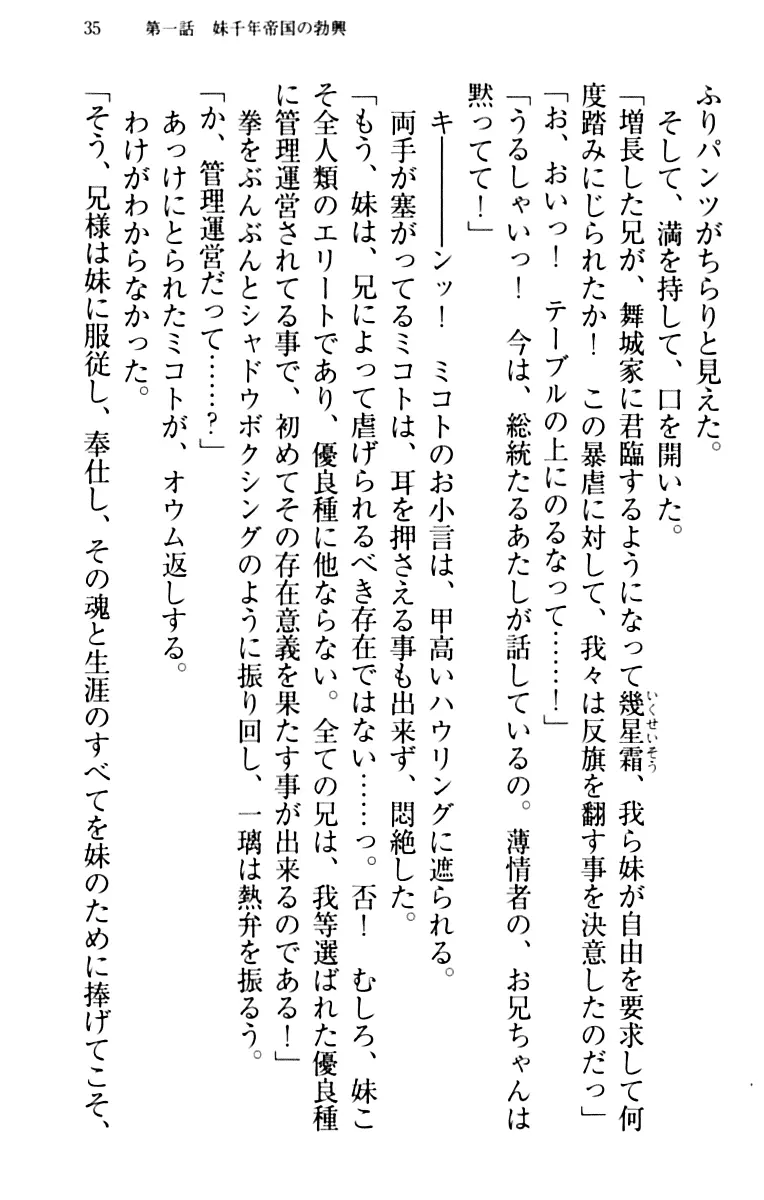 35　第一話　妹千年帝国の勃興
ふりパンツがちらりと見えた。
　そして、満を持して、口を開いた。
「増長した兄が、舞城家に君臨するようになって幾星霜、我ら妹が自由を要求して何
いくせいそう
度踏みにじられたか！　この暴虐に対して、我々は反旗を翻す事を決意したのだっ」
「お、おいっ！　テーブルの上にのるなって……！」
「うるしゃいっ！　今は、総統たるあたしが話しているの。薄情者の、お兄ちゃんは
黙ってて！」
　キ――――ンッ！　ミコトのお小言は、甲高いハウリングに遮られる。
　両手が塞がってるミコトは、耳を押さえる事も出来ず、悶絶した。
「もう、妹は、兄によって虐げられるべき存在ではない……っ。否！　むしろ、妹こ
そ全人類のエリートであり、優良種に他ならない。全ての兄は、我等選ばれた優良種
に管理運営されてる事で、初めてその存在意義を果たす事が出来るのである！」
　拳をぶんぶんとシャドウボクシングのように振り回し、一璃は熱弁を振るう。
「か、管理運営だって……？」
　あっけにとられたミコトが、オウム返しする。
　わけがわからなかった。
「そう、兄様は妹に服従し、奉仕し、その魂と生涯のすべてを妹のために捧げてこそ、